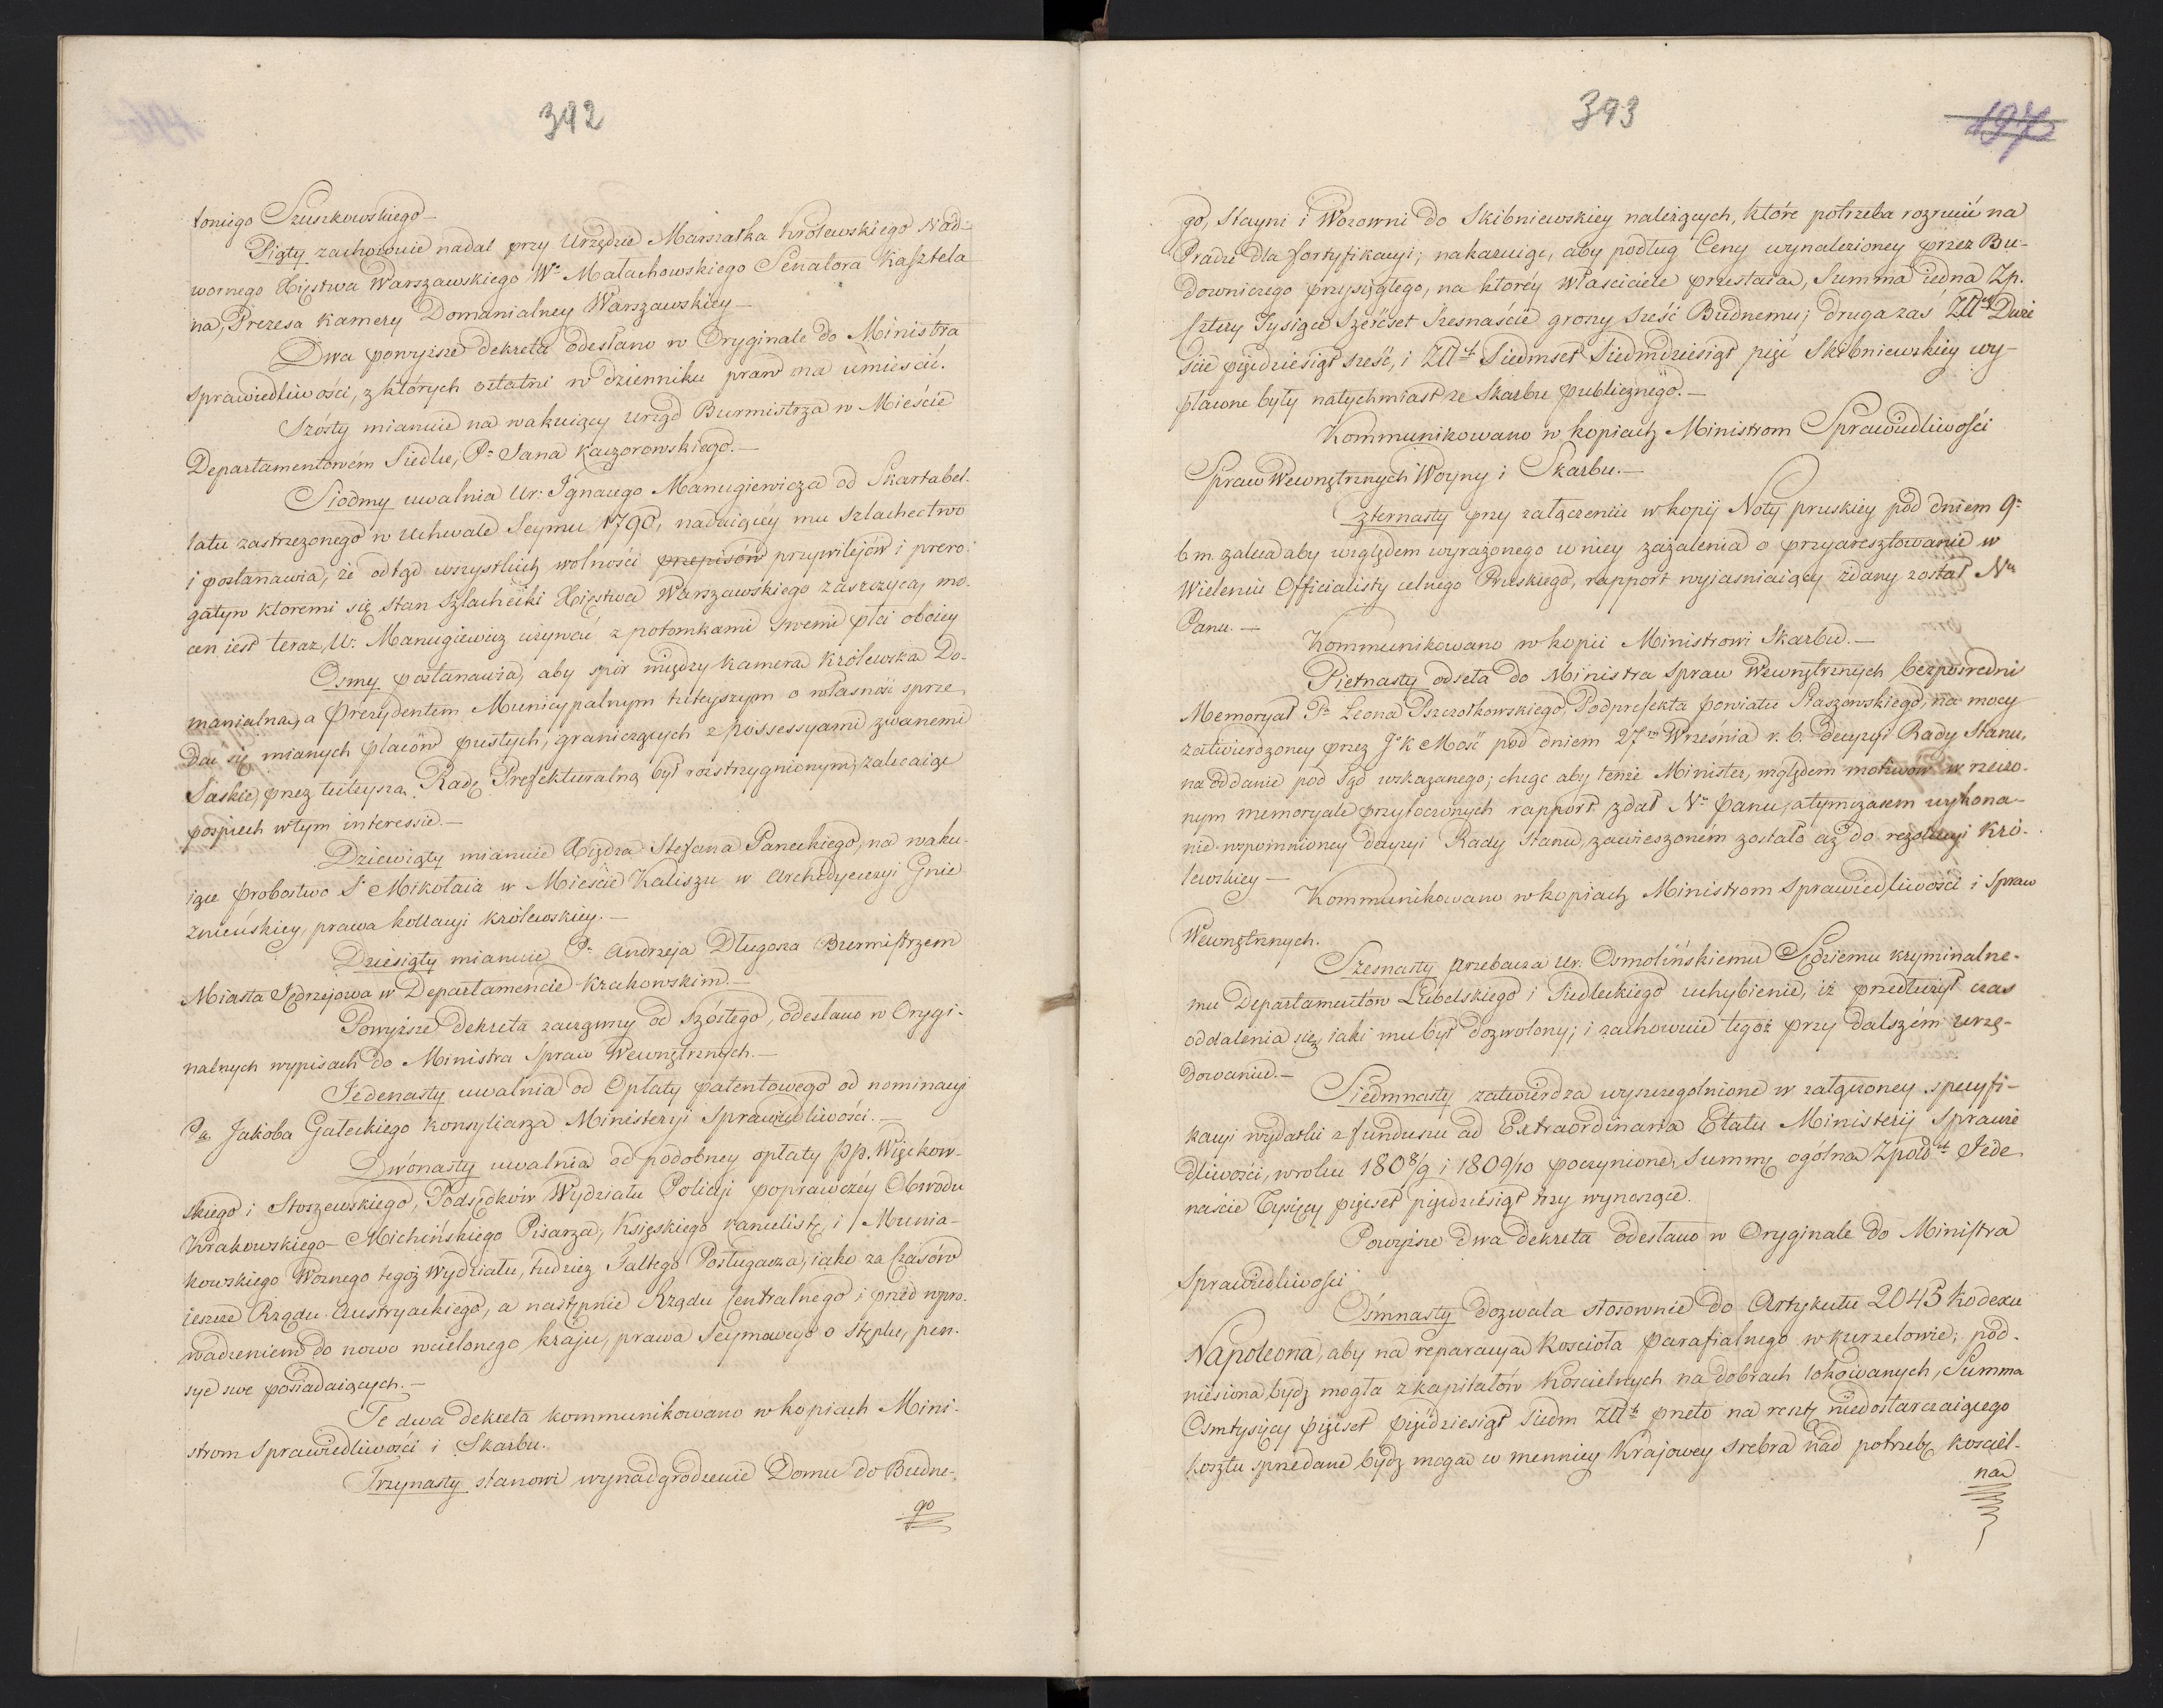 392
toniego Szuszkowskiego —
Piąty zachowuie nadal przy Urzędzie Marszałka Królewskiego Nad-
wornego Xięstwa Warszawskiego Wo Małachowskiego Senatora Kasztela
na, Prezesa Kamery Domanialney Warszawskiey —
Dwa powyższe dekreta odesłano w Oryginale do Ministra
Sprawiedliwości, z których ostatni w dzienniku praw ma umieścić.
Szósty mianuie na wakuiący urząd Burmistrza w Mieście
Departamentowém Siedlce, Pa Jana Kaczorowskiego. —
Siodmy uwalnia Ur: Ignacego Manugiewicza od Skartabel-
latu zastrzezonego w Uchwale Seymu 1790, nadaiącéy mu szlachectwo
i postanawia, że odtąd wszystkich wolności przepisów przywilejów i prero-
gatyw ktoremi się stan szlachecki Xięstwa Warszawskiego zaszczyca, mo-
cen iest teraz, Ur. Manugiewicz używać z potomkami swemi płci oboiey
Osmy postanawia, aby spór między Kamerą Królewską Do-
manialną, a Prezydentem Municypalnym tuteyszym o własność sprze
dać się mianych placów pustych, graniczących z possessyami zwanemi
Saskie, przez tuteyszą Radę Prefekturalną był rozstrzygnionym, zalecaiąc
pospiech w tym interessie. —
Dziewiąty mianuie Xiędza Stefana Paneckiego, na waku-
iące probostwo S. Mikołaia w Mieście Kaliszu w Archidyecezyi Gnie
znieńskiey, prawa kollacyi królewskiey. —
Dziesiąty mianuie Pa Andrzeja Długosza Burmistrzem
Miasta Jędrzejowa w Departamencie Krakowskim. —
Powyższe dekreta zacząwszy od Szóstego, odesłano w Orygi-
nalnych wypisach do Ministra Spraw Wewnętrznych. —
Jedenasty uwalnia od Opłaty patentowego od nominacyi
Pa Jakóba Gałeckiego Konsyliarza Ministeryi Sprawiedliwości. —
Dwónasty uwalnia od podobney opłaty PP. Więckow-
skiego i Stoszewskiego, Podsędków Wydziału Policyi poprawczéy Obwodu
Krakowskiego — Michińskiego Pisarza, Księskiego Kancelistę, i Munia-
kowskiego Woznego tegoż Wydziału, tudzież Galtego Posługacza, iako za Czasów
ieszcze Rządu Austryackiego, a następnie Rządu Centralnego i przed wpro-
wadzeniem do nowo wcielonego kraju, prawa Seymowego o Stęplu, pen-
sye swe posiadaiących. —
Te dwa dekreta kommunikowano w kopiach Mini-
strom Sprawiedliwości i Skarbu.
Trzynasty stanowi wynadgrodzenie Domu do Budne-
go
393
197
go, Stayni i Wozowni do Skibniewskiey należących, które potrzeba rozrzucić na
Pradze dla fortyfikacyi; nakazuiąc, aby podług Ceny wynalezioney przez Bu-
downiczego przysięgłego, na któréy właściciele przestaią, Summa iedna Zp.
Cztery Tysiące Sześćset Szesnaście groszy sześć Budnemu; druga zaś Złt Dwie
ście pięćdziesiąt sześć, i Złt Siedmset Siedmdziesiąt pięć Skibniewskiey wy-
płacone były natychmiast ze Skarbu publicznego. —
Kommunikowano w kopiach Ministrom Sprawiedliwości
Spraw Wewnętrznych Woyny i Skarbu. —
Czternasty przy załączeniu w kopij Noty pruskiey pod dniem 9o
b m. zaleca aby względem wyrażonego w niey zażalenia o przyaresztowanie w
Wieleniu Officialisty celnego Pruskiego, rapport wyiaśniaiący zdany został Nu
Panu. —
Kommunikowano w kopii Ministrowi Skarbu. —
Piętnasty odseła do Ministra Spraw Wewnętrznych bezpośredni
Memoryał Pa Leona Pszczołkowskiego, Podprefekta powiatu Staszowskiego, na mocy
zatwierdzoney przez J. K Mość pod dniem 27m Września r. b. decyzyi Rady Stanu,
na oddanie pod sąd wskazanego; chcąc aby tenże Minister, względem motiwów w rzeczo-
nym memoryale przytoczonych rapport zdał No Panu, a tymczasem wykona-
nie wspomnioney decyzyi Rady Stanu, zawieszoném zostało aż do rezolucyi Kró-
lewskiey —
Kommunikowano w kopiach Ministrom Sprawiedliwości i Spraw
Wewnętrznych.
Szesnasty przebacza Ur. Osmolińskiemu Sędziemu kryminalne-
mu Departamentów Lubelskiego i Siedleckiego uchybienie, iż przedłużył czas
oddalenia się, iaki mu był dozwolony; i zachowuie tegoż przy dalszém urzę-
dowaniu. —
Siedmnasty zatwierdza wyszczegolnione w załączoney specyfi-
kacyi wydatki z funduszu ad Extraordinaria Etatu Ministeryi Sprawie
dliwości, w roku 1808/9 i 1809/10 poczynione, Summę ogólną Zpold Jede
naście Tysięcy pięćset pięćdziesiąt trzy wynoszące.
Powyższe dwa dekreta odesłano w Oryginale do Ministra
Sprawiedliwości
Ośmnasty dozwala stosownie do Artykułu 2045 Kodexu
Napoleona, aby na reparacyą Kościoła parafialnego w Kurzelowie; pod-
niesioną bydź mogła z kapitałów Kościelnych na dobrach lokowanych, Summa
Osmtysięcy pięćset pięćdziesiąt siedm Złt przeto na resztę niedostarczaiącego
kosztu sprzedane bydź mogą w mennicy Krajowey srebra nad potrzebę kościel-
ną